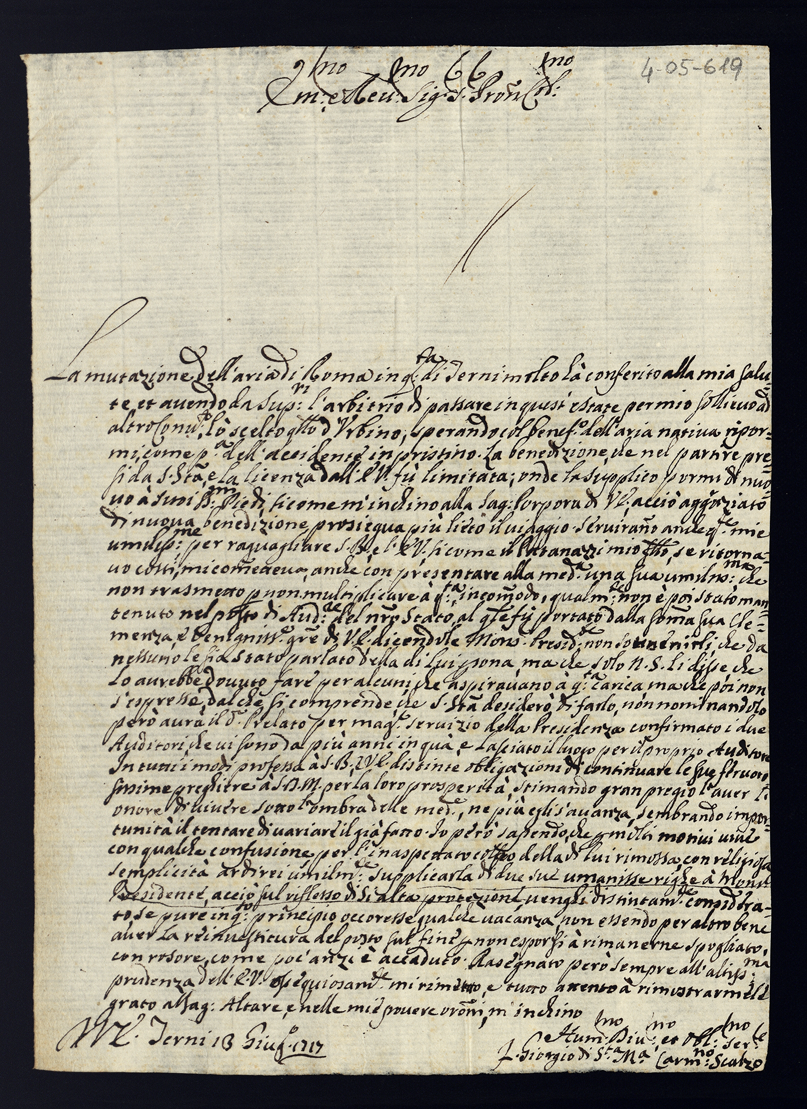 4-05-619
Em.mo e Rev.mo Sig.r Pron Col.mo
La mutazione dell'aria di Roma in q.ta di Terni molto hà conferito alla mia salu=
te et avendo da Sup.ri l'arbitrio di passare in quest'estate per mio sollievo ad
altro Conv.to, hò scelto d'Urbino, sperando col benef.o dell'aria nativa ripor=
mi, come p.a dell'accidente in pristino. La benedizione che nel partire pre=
si da S. Stà, e la licenza dall'E.V. fù limitata; onde la supplico pormi di nuo=
vo à Suoi SS.mi Piedi, sicome m'inchino alla Sag: Porpora di V.E. acciò aggraziato
di nuova benedizione prosiegua più lieto il viaggio. Serviranno anche q.te mie
umiliss.me per raguagliare S.B. e l'E.V. sicome il mio, se ritorna=
va costì, mi cometteva, anche con presentare alla med.a una sua umiliss.ma che
non trasmetto p non multiplicare à q.ta incomodo; qualm.te non è poi stato man=
tenuto nel posto di Aud.re del nro Stato, al q.le fù portato dalla somma sua Cle=
menza, e benigniss.e di V.E. dicendole Mons. Presid.te non sovvenirli che da
nessuno le sia stato parlato della di lui psona, ma che solo N.S. li disse che
lo aurebbe dovuto fare per alcuni, che aspiravano à q.ta carica ma che poi non
s'espresse, dal che si comprende che S. Stà desiderò di farlo, non nominandolo
però aurà il d.o Prelato per mag.r servizio della Presidenza confirmato i due
Auditori, che vi sono da più anni in quà, e lasciato il luogo per il proprio Auditore
In tutti i modi professa à S.B., e V.E. distinte obligazioni di continuare le sue fervoro=
sissime preghiere à S.D.M. per la loro prosperità, stimando gran pregio l'aver l'
onore di vivere sotto l'ombra delle med.e, ne più egli s'avanza, sembrando impor=
tunità il tentare di variare il già fatto. Io però sapendo, che p molti motivi vive
con qualche confusione per l'inaspettato della di lui rimossa, con religiosa
semplicità ardirei umilm.te supplicarla di due sue umanisse righe à Mons.r
Presidente, acciò sul riflesso di sì alta protezione venghi distintam.te considera=
to, se pure in q.to principio occoresse qualche vacanza, non essendo per altro bene
aver la reinvestitura del posto sul fine p non esporsi à rimanerne spogliato
con rosore, come poc'anzi è accaduto. Rasegnato però sempre all'altiss.ma
prudenza dell'E.V. osequiosam.te mi rimetto, e tutto attento à rimostrarmele
grato al Sag: Altare, e nelle mie povere oroni, m'inchino
D.V.E. Terni 18 Giug.o 1717
Hum.mo Div.mo et Obl.mo Ser.e
F. Giorgio di S.ta M.a Carm.no Scalzo